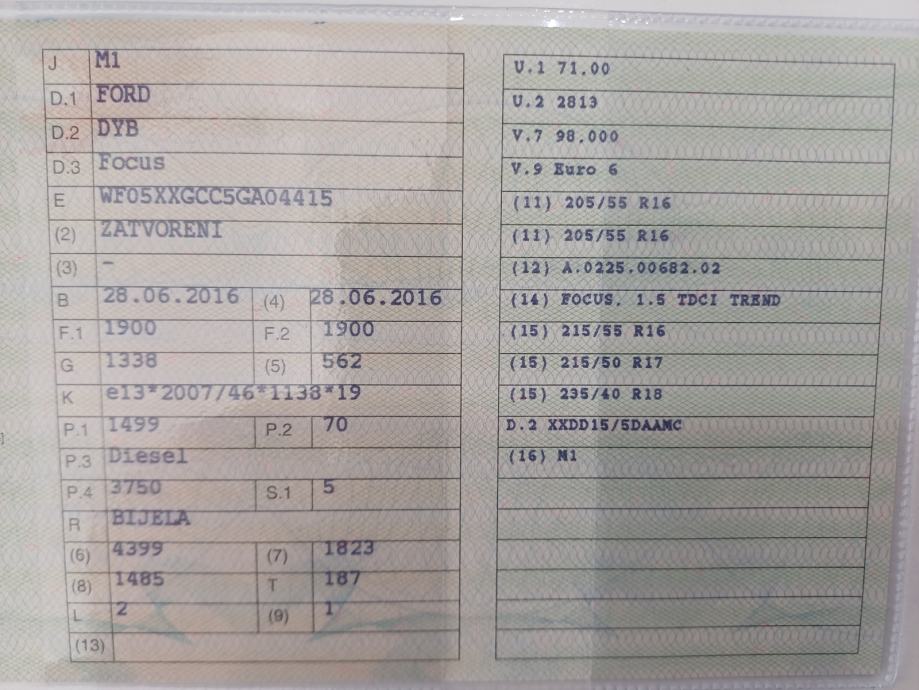 J M1
D.1 FORD
D.2 DYB
D.3 Focus
E WF05XXGCC5GA04415
(2) ZATVORENI
(3) –
B 28.06.2016 (4) 28.06.2016
F.1 1900 F.2 1900
G 1338 (5) 562
K e13*2007/46*1138*19
P.1 1499 P.2 70
P.3 Diesel
P.4 3750 S.1 5
R BIJELA
(6) 4399 (7) 1823
(8) 1485 T 187
L 2 (9) 1
(13)
U.1 71.00
U.2 2813
V.7 98.000
V.9 Euro 6
(11) 205/55 R16
(11) 205/55 R16
(12) A.0225.00682.02
(14) FOCUS. 1.5 TDCI TREND
(15) 215/55 R16
(15) 215/50 R17
(15) 235/40 R18
D.2 XXDD15/5DAAMC
(16) M1